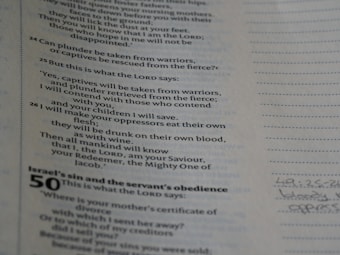 your foster fathers,
queens your nursing mothers.
down before you with their
faces to the ground;
they will lick the dust at your feet.
Then you will know that I am the LORD;
those who hope in me will not be
disappointed.'
24 Can plunder be taken from warriors,
or captives be rescued from the fierce?
25 But this is what the LORD says:
'Yes, captives will be taken from warriors,
and plunder retrieved from the fierce;
I will contend with those who contend
with you,
and your children I will save.
26 I will make your oppressors eat their own
flesh;
they will be drunk on their own blood,
as with wine.
Then all mankind will know
that I, the LORD, am your Saviour,
your Redeemer, the Mighty One of
Jacob.'
Israel's sin and the servant's obedience
50 This is what the LORD says:
'Where is your mother's certificate of
divorce
with which I sent her away?
Or to which of my creditors
did I sell you?
Because of your sins you were sold;
because of your